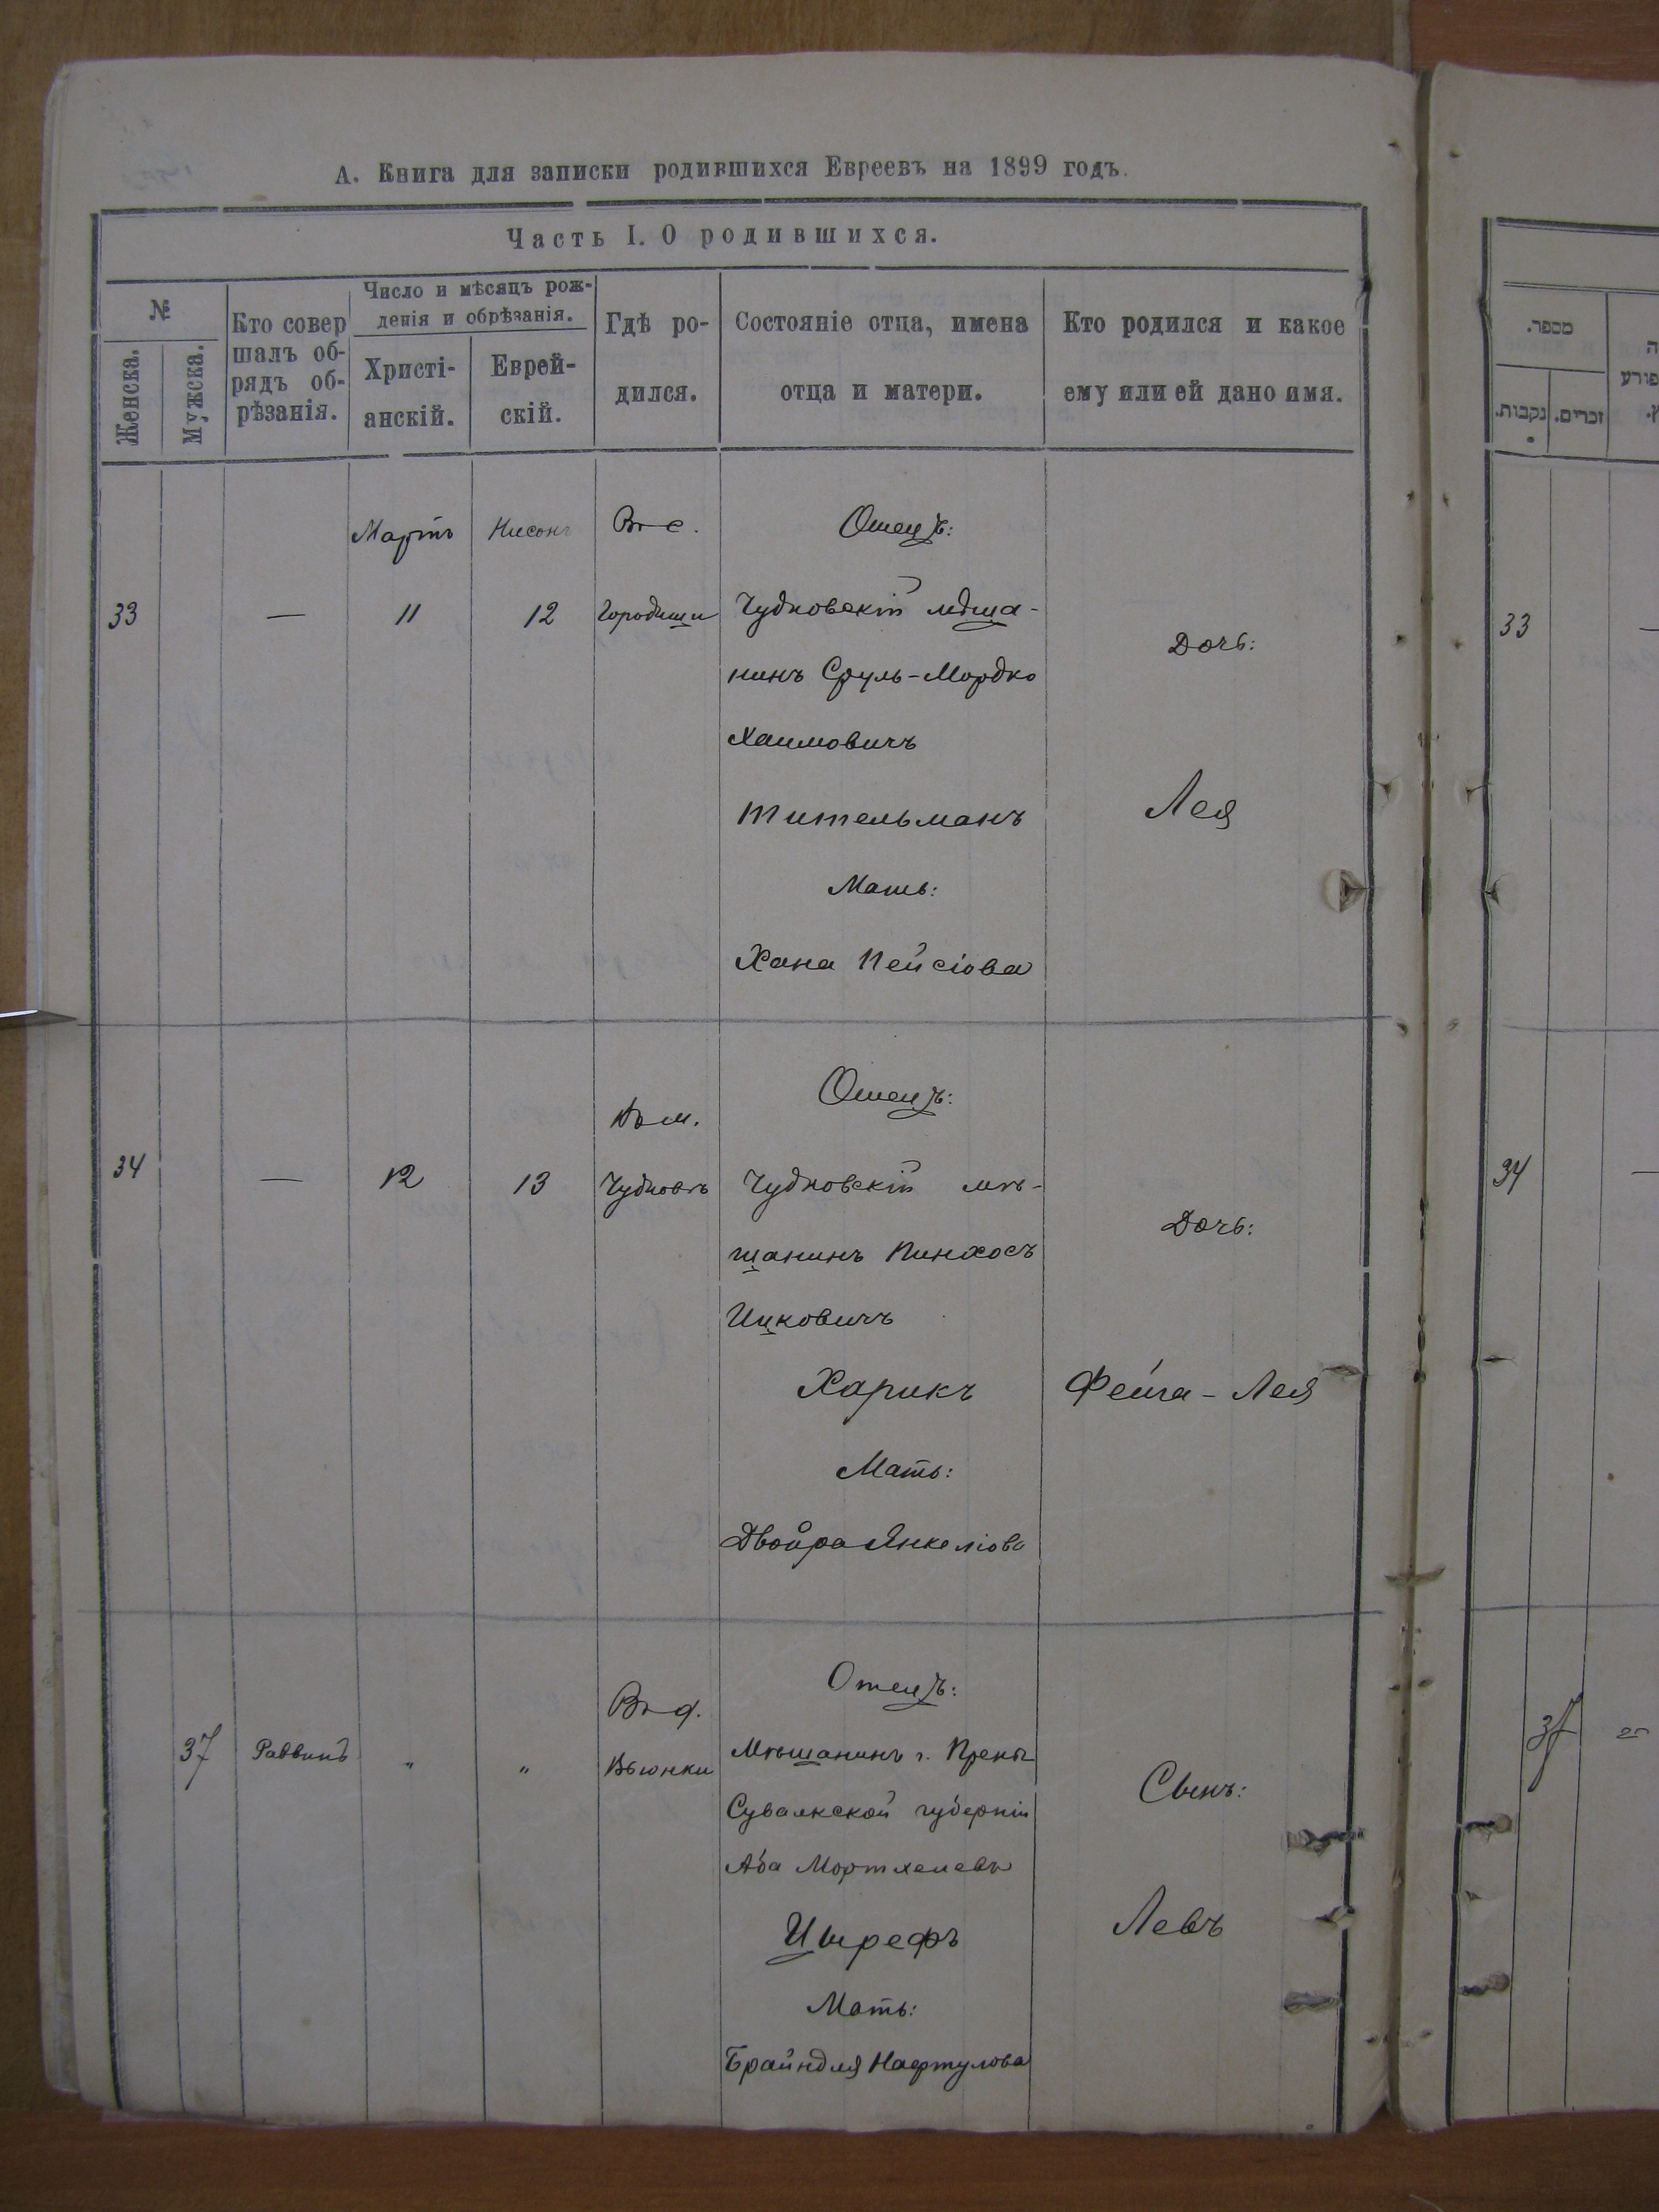 А. Книга для записки родившихся Евреевъ на 1899 годъ.
Часть I. О родившихся.
№
Женска.
Мужска.
Кто совер
шалъ об-
рядъ об-
рѣзанія.
Число и мѣсяцъ рож-
денія и обрѣзанія.
Христі-
анскій.
Еврей-
скій.
Гдѣ ро-
дился.
Состояніе отца, имена
отца и матери.
Кто родился и какое
ему или ей дано имя.
33
—
Мартъ
11
Нисонъ
12
Въ с.
Городищи
Отецъ:
Чудновскій мѣща-
нинъ Сруль-Мордко
Хаимовичъ
Тительманъ
Мать:
Хана Пейсіова
Дочь:
Лея
34
—
12
13
Въ м.
Чудновѣ
Отецъ:
Чудновскій мѣ-
щанинъ Пинхосъ
Ицковичъ
Харикъ
Мать:
Двойра Янкеліова
Дочь:
Фейга - Лея
37
Раввинъ
"
"
Въ д.
Вьюнки
Отецъ:
Мѣщанинъ г. Прены
Сувалкской губерніи
Аба Мортхелевъ
Мать:
Брайндля Нафтулова
Сынъ:
Левъ
מספר.
נקבות.
זכרים.
33
34
37